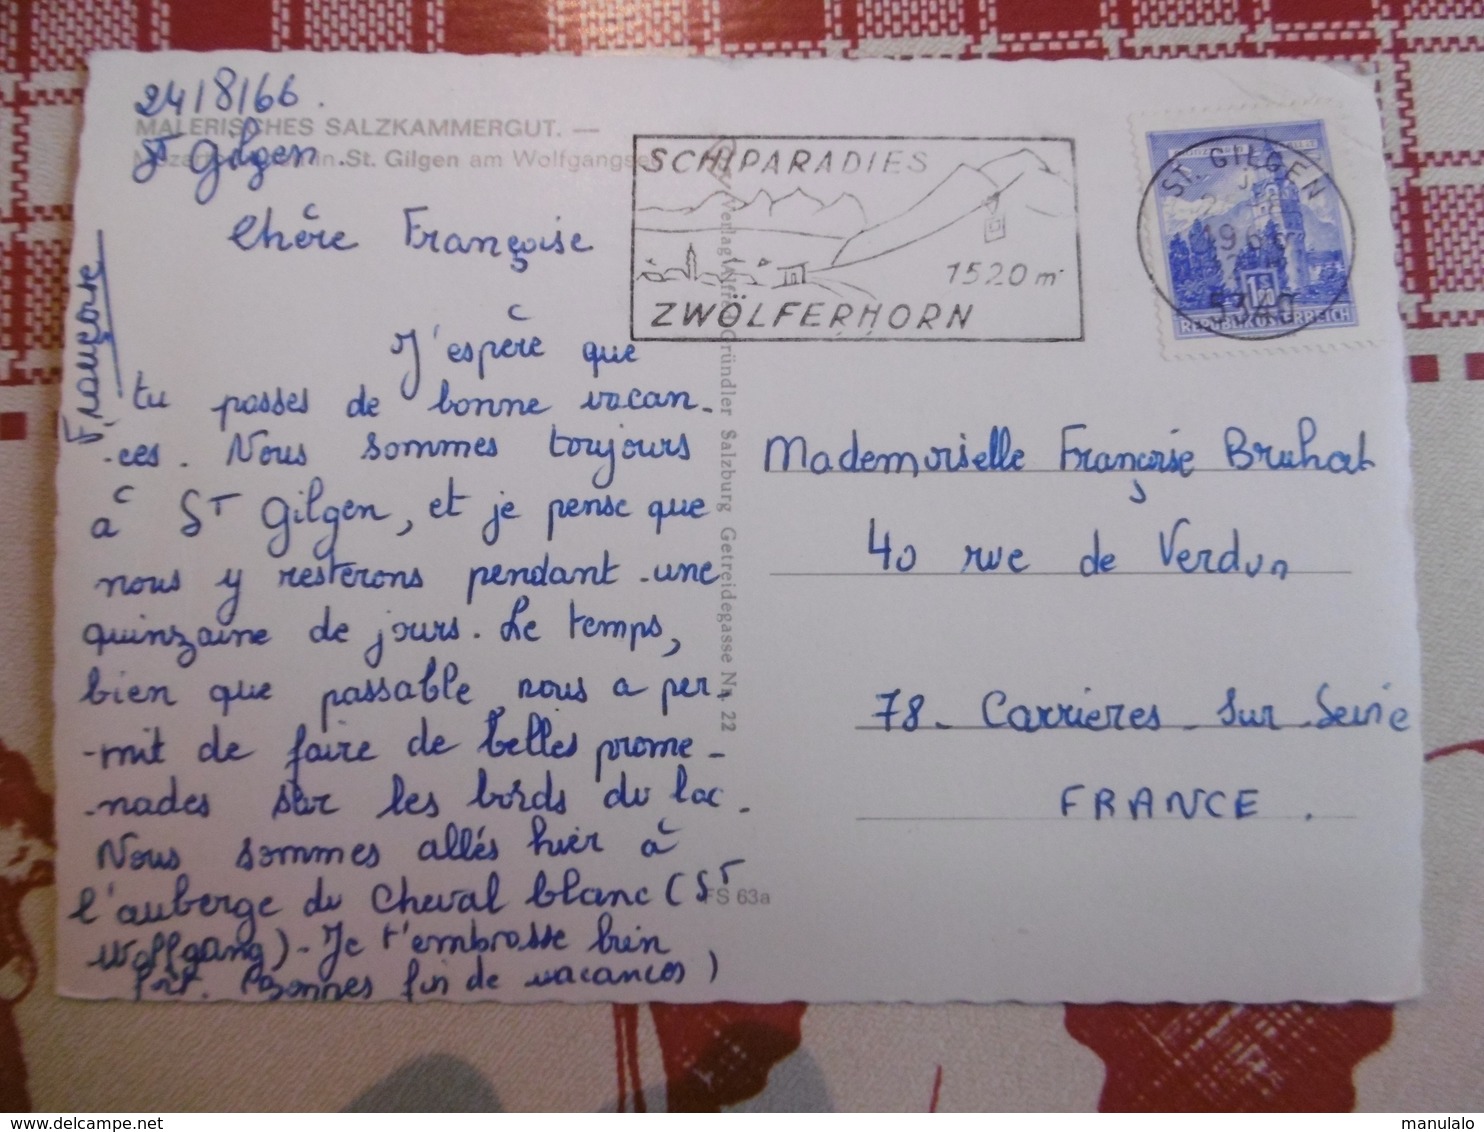 24/8/66.
MALERISCHES SALZKAMMERGUT. —
St Gilgen.
in St. Gilgen am Wolfgangsee
Chère Françoise
J'espère que
tu passes de bonne vacan-
-ces. Nous sommes toujours
à St Gilgen, et je pense que
nous y resterons pendant une
quinzaine de jours. Le temps,
bien que passable nous a per-
-mit de faire de belles prome-
-nades sur les bords du lac.
Nous sommes allés hier à
l'auberge du Cheval blanc (St
Wolfgang) - Je t'embrasse bien
fort. Bonnes fin de vacances)
Françoise
Verlag Alfred Gründler Salzburg Getreidegasse Nr. 22
FS 63a
SCHIPARADIES
1520 m
ZWÖLFERHORN
ST. GILGEN
5340
REPUBLIK ÖSTERREICH
Mademoiselle Françoise Bruhat
40 rue de Verdun
78 - Carrieres - Sur - Seine
FRANCE.
delcampe.net
manulalo